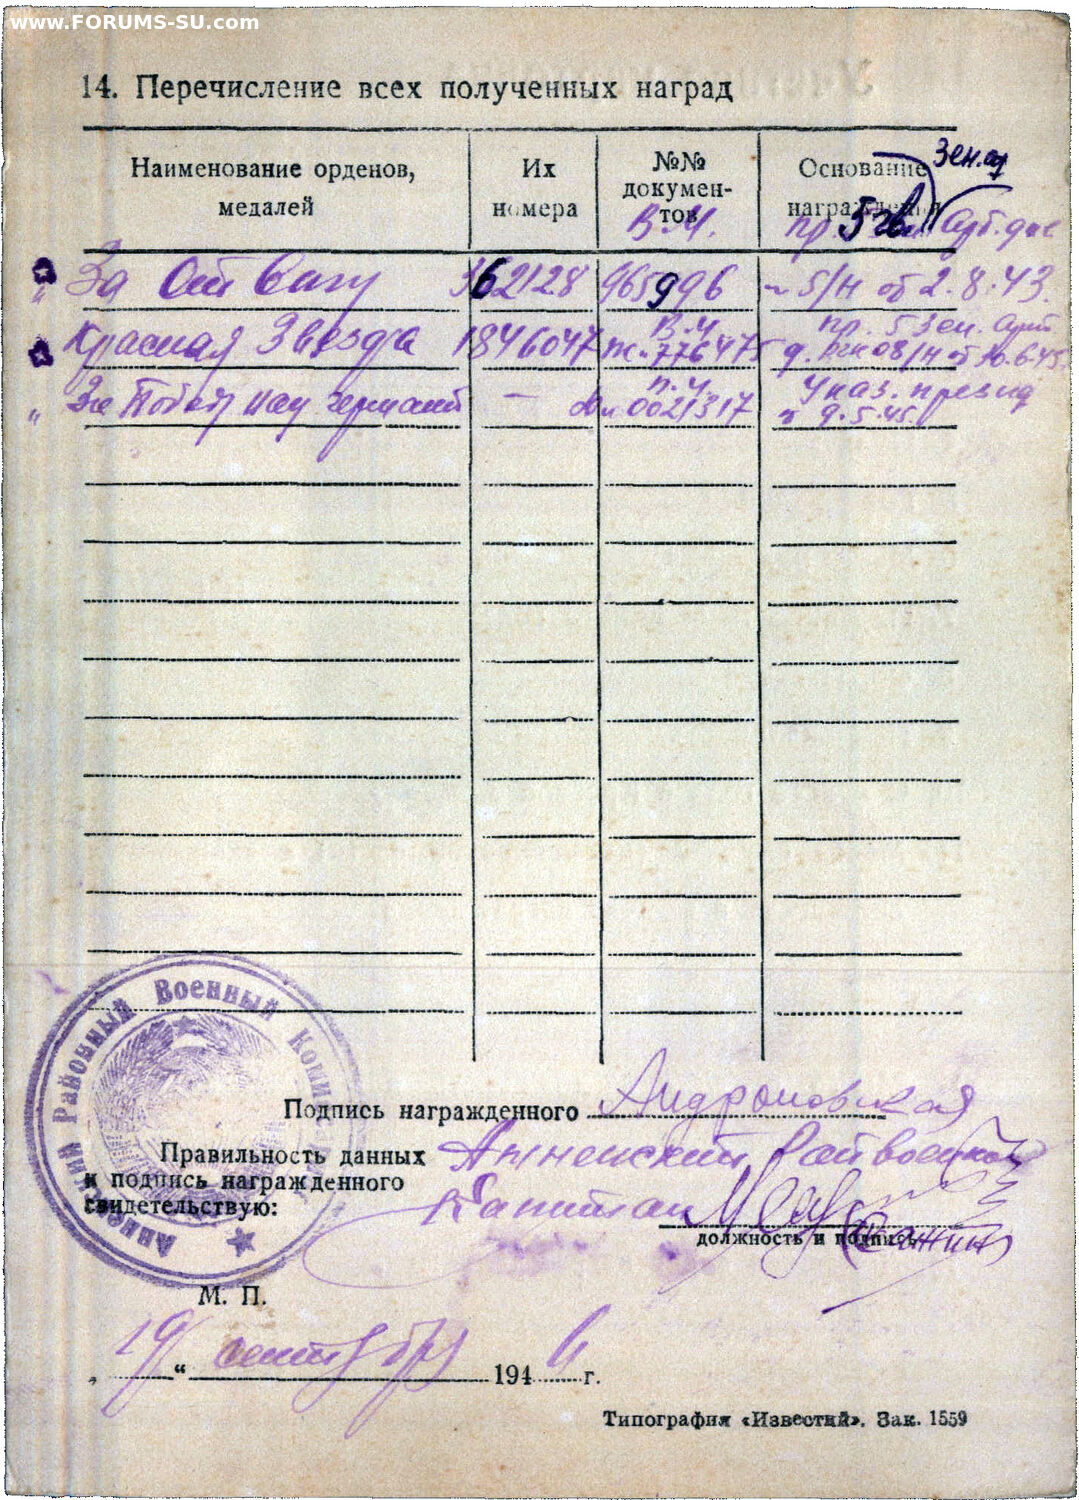 www.FORUMS-SU.com
14. Перечисление всех полученных наград
Наименование орденов, медалей
Их номера
№№ документов
Основание награждения
Зен.
В.И.
пр. 5 гв. Арт. див
За Отвагу 362128 965996 5/н об 2.8.43.
В.И. пр. 5 Зен. Арт
Красная Звезда 1846047 776475 д. 08/н об 10.6.45
Указ. презид
За Победу над Германией — 0021317 9.5.45.
Подпись награжденного Андроновская
Правильность данных
и подпись награжденного
свидетельствую:
Анненский Райвоенком
Капитан
должность и подпись
Аннский Районный Военный Комиссариат
М. П.
„19“ сентября 1946 г.
Типография «Известий». Зак. 1559